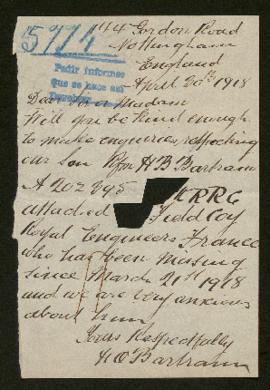 5774
44 Gordon Road
Nottingham
England
Pedir informes
que se hace así
April 20th 1918
Dear Sir or Madam
Will you be kind enough
to make enquiries, respecting
our Son Rfn H B Bartram
A 202895 KRRC
attached Field Coy
Royal Engineers, France
who has been missing
since March 21st 1918
and we are very anxious
about him
Yours Respectfully
H O Bartram